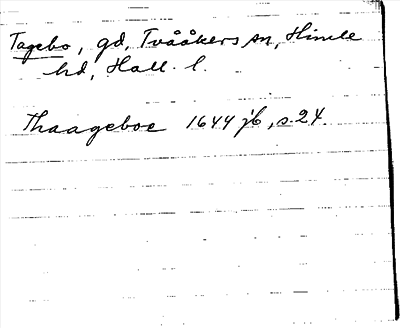 Tagebo, gd, Tvååkers sn, Himle
hd, Hall. l.
Thaageboe 1644 jb, s. 24.